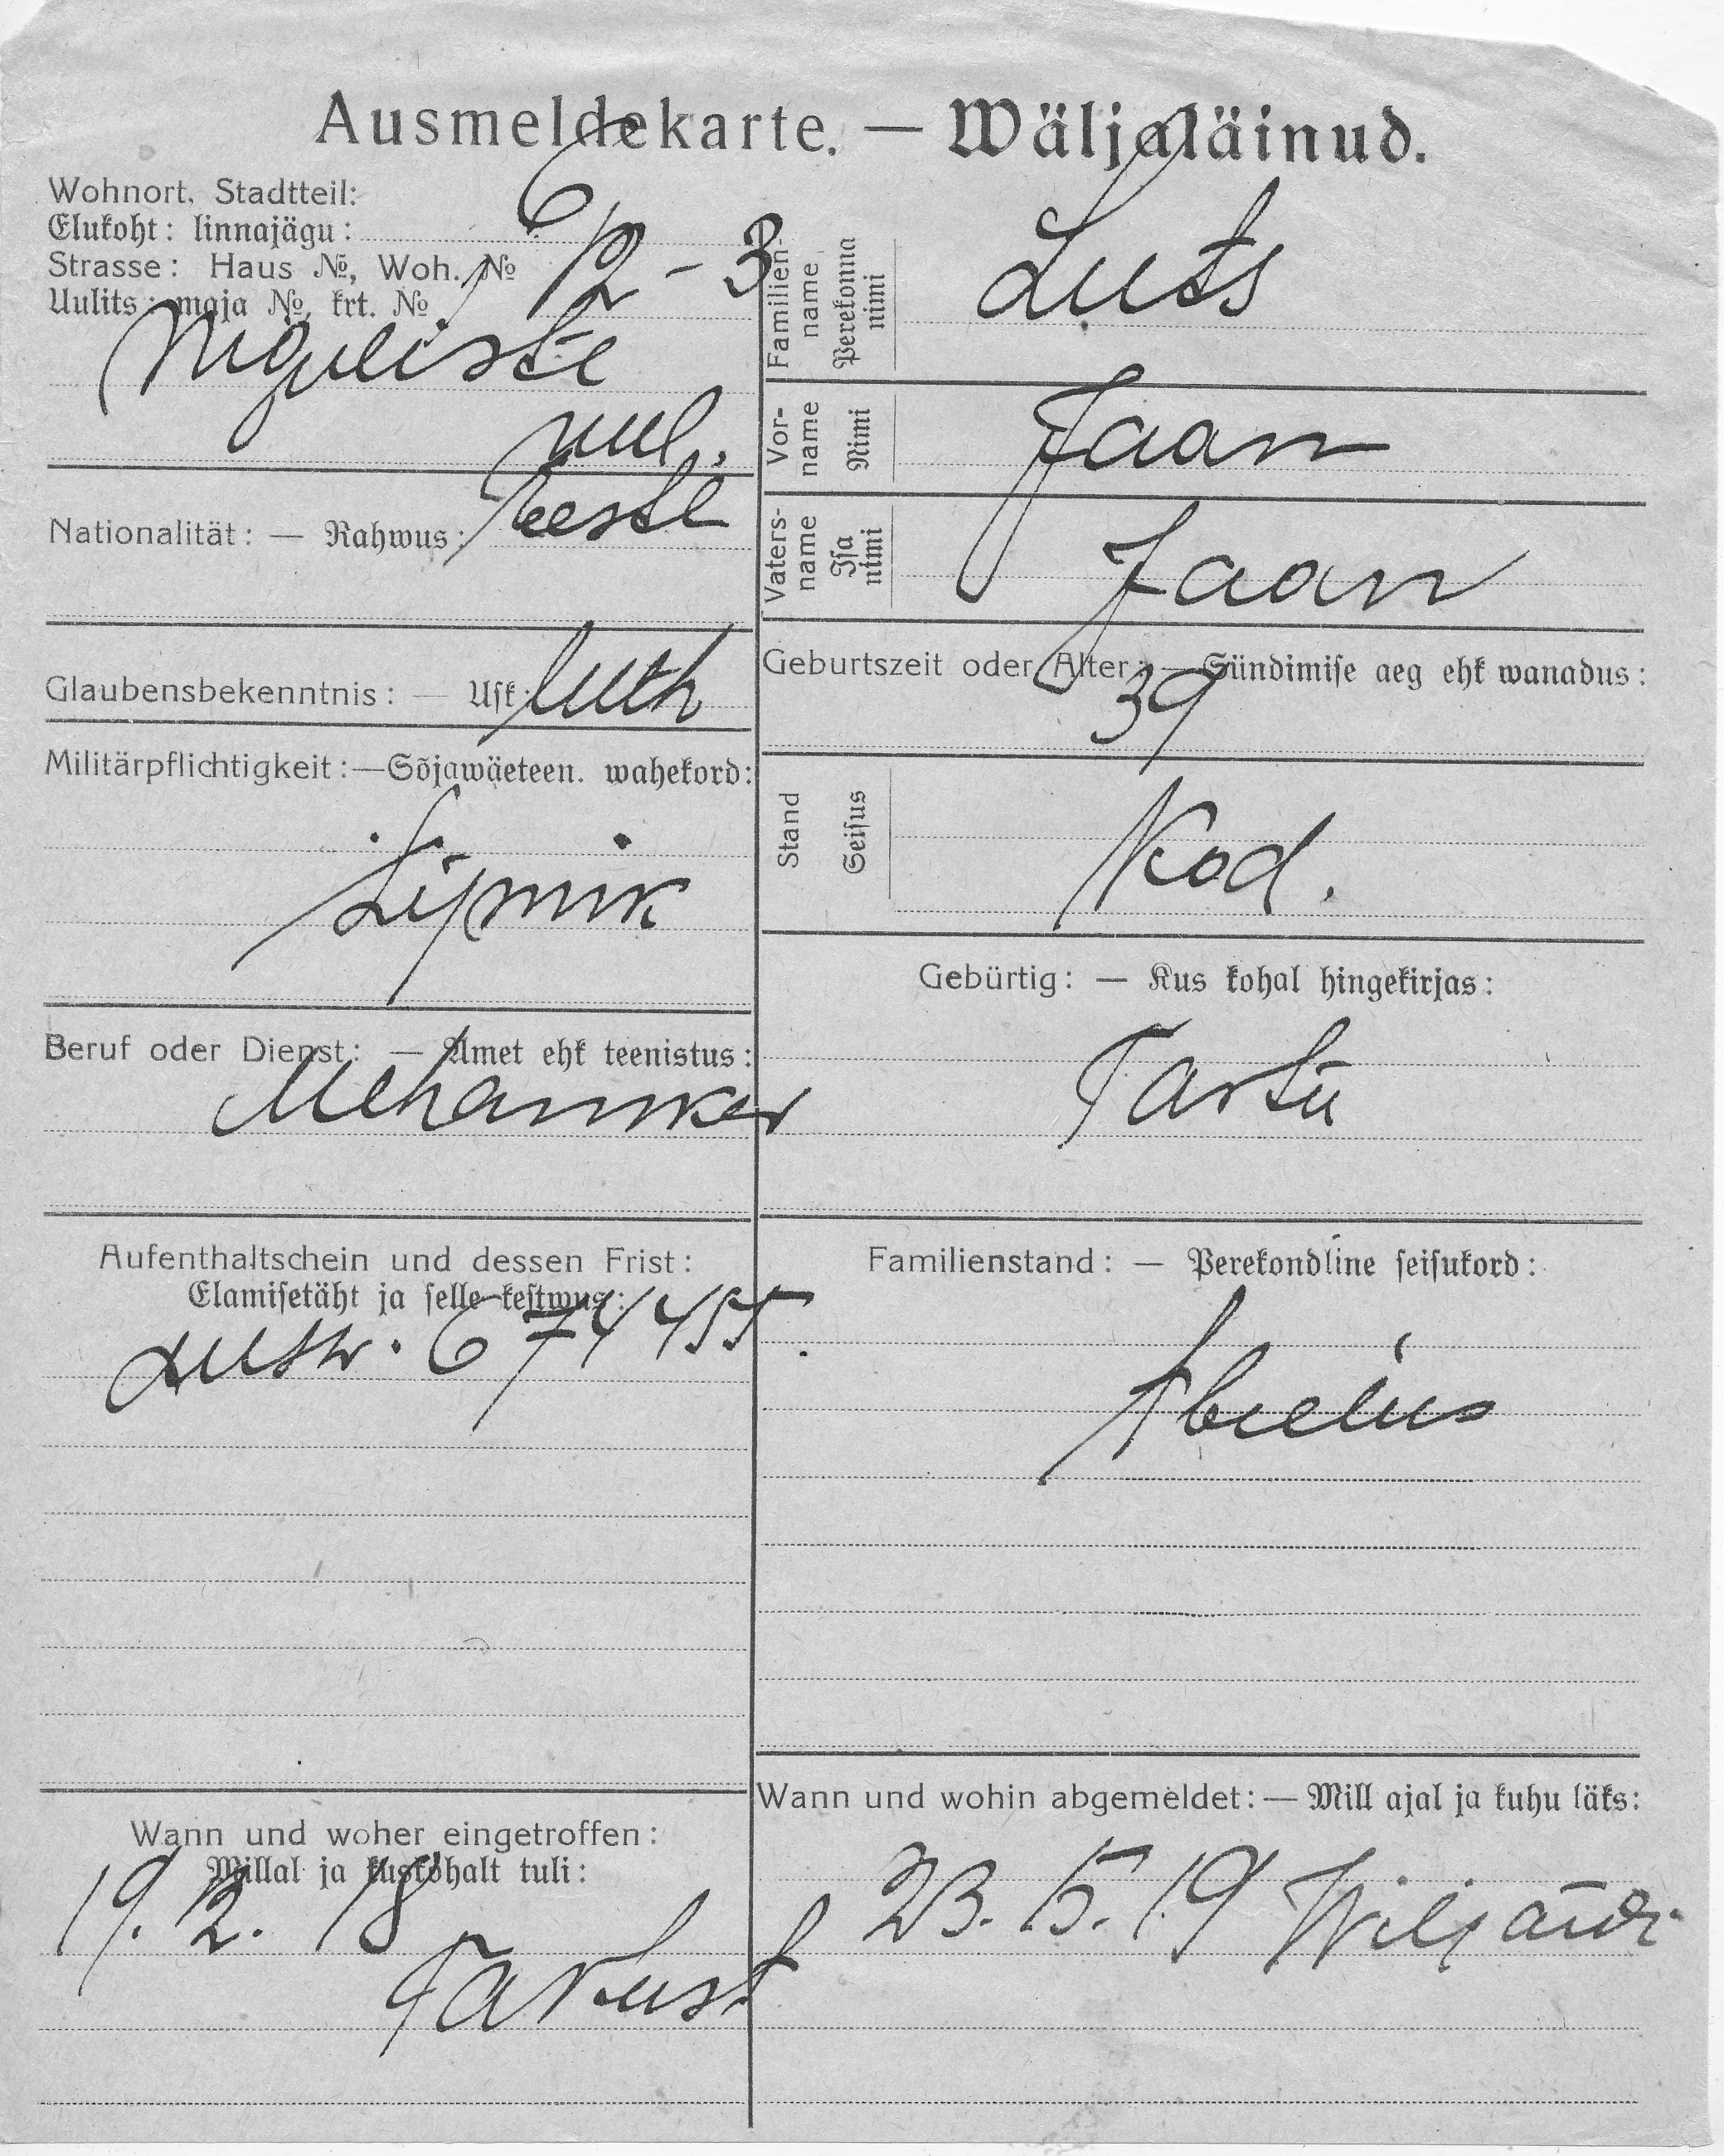 Ausmeldekarte. — Wäljaläinud.
Wohnort, Stadtteil:
Elukoht: linnajägu:
Strasse: Haus №, Woh. №
Uulits: maja №, krt. №
12 - 3
Niguliste
uul.
Nationalität: — Rahwus: Eesti
Glaubensbekenntnis: — Usk: luth
Militärpflichtigkeit: — Sõjawäeteen. wahekord:
Beruf oder Dienst: — Amet ehk teenistus:
Mehaniker
Aufenthaltschein und dessen Frist:
Elamisetäht ja selle kestwus:
674455.
Wann und woher eingetroffen:
Millal ja kuskohalt tuli:
19. 2. 18
Tartust
Familien-name Perekonna nimi Luts
Vor-name Nimi Jaan
Vaters-name Isa nimi Jaan
Geburtszeit oder Alter: — Sündimise aeg ehk wanadus:
39
Stand Seisus Kod.
Gebürtig: — Kus kohal hingekirjas:
Tartu
Familienstand: — Perekondline seisukord:
Abielus
Wann und wohin abgemeldet: — Mill ajal ja kuhu läks:
23. 5. 19 Wiljandi